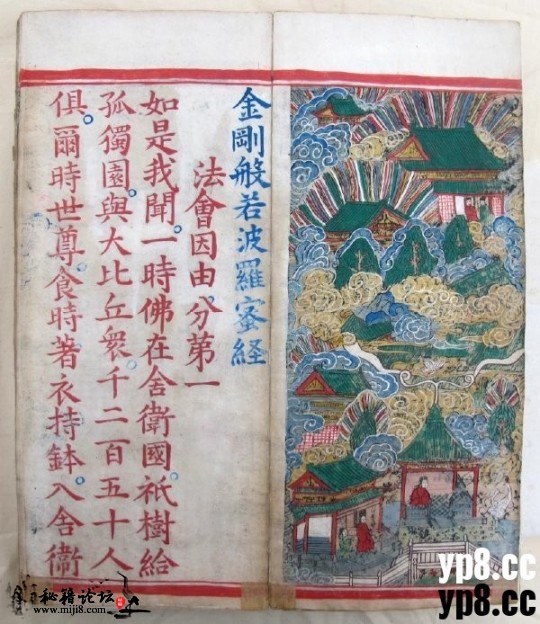 金剛般若波羅蜜經
法會因由分第一
如是我聞一時佛在舍衛國祇樹給
孤獨園與大比丘衆千二百五十人
俱爾時世尊食時著衣持鉢入舍衛
秘籍论坛
www.miji8.com
yp8.cc
yp8.cc